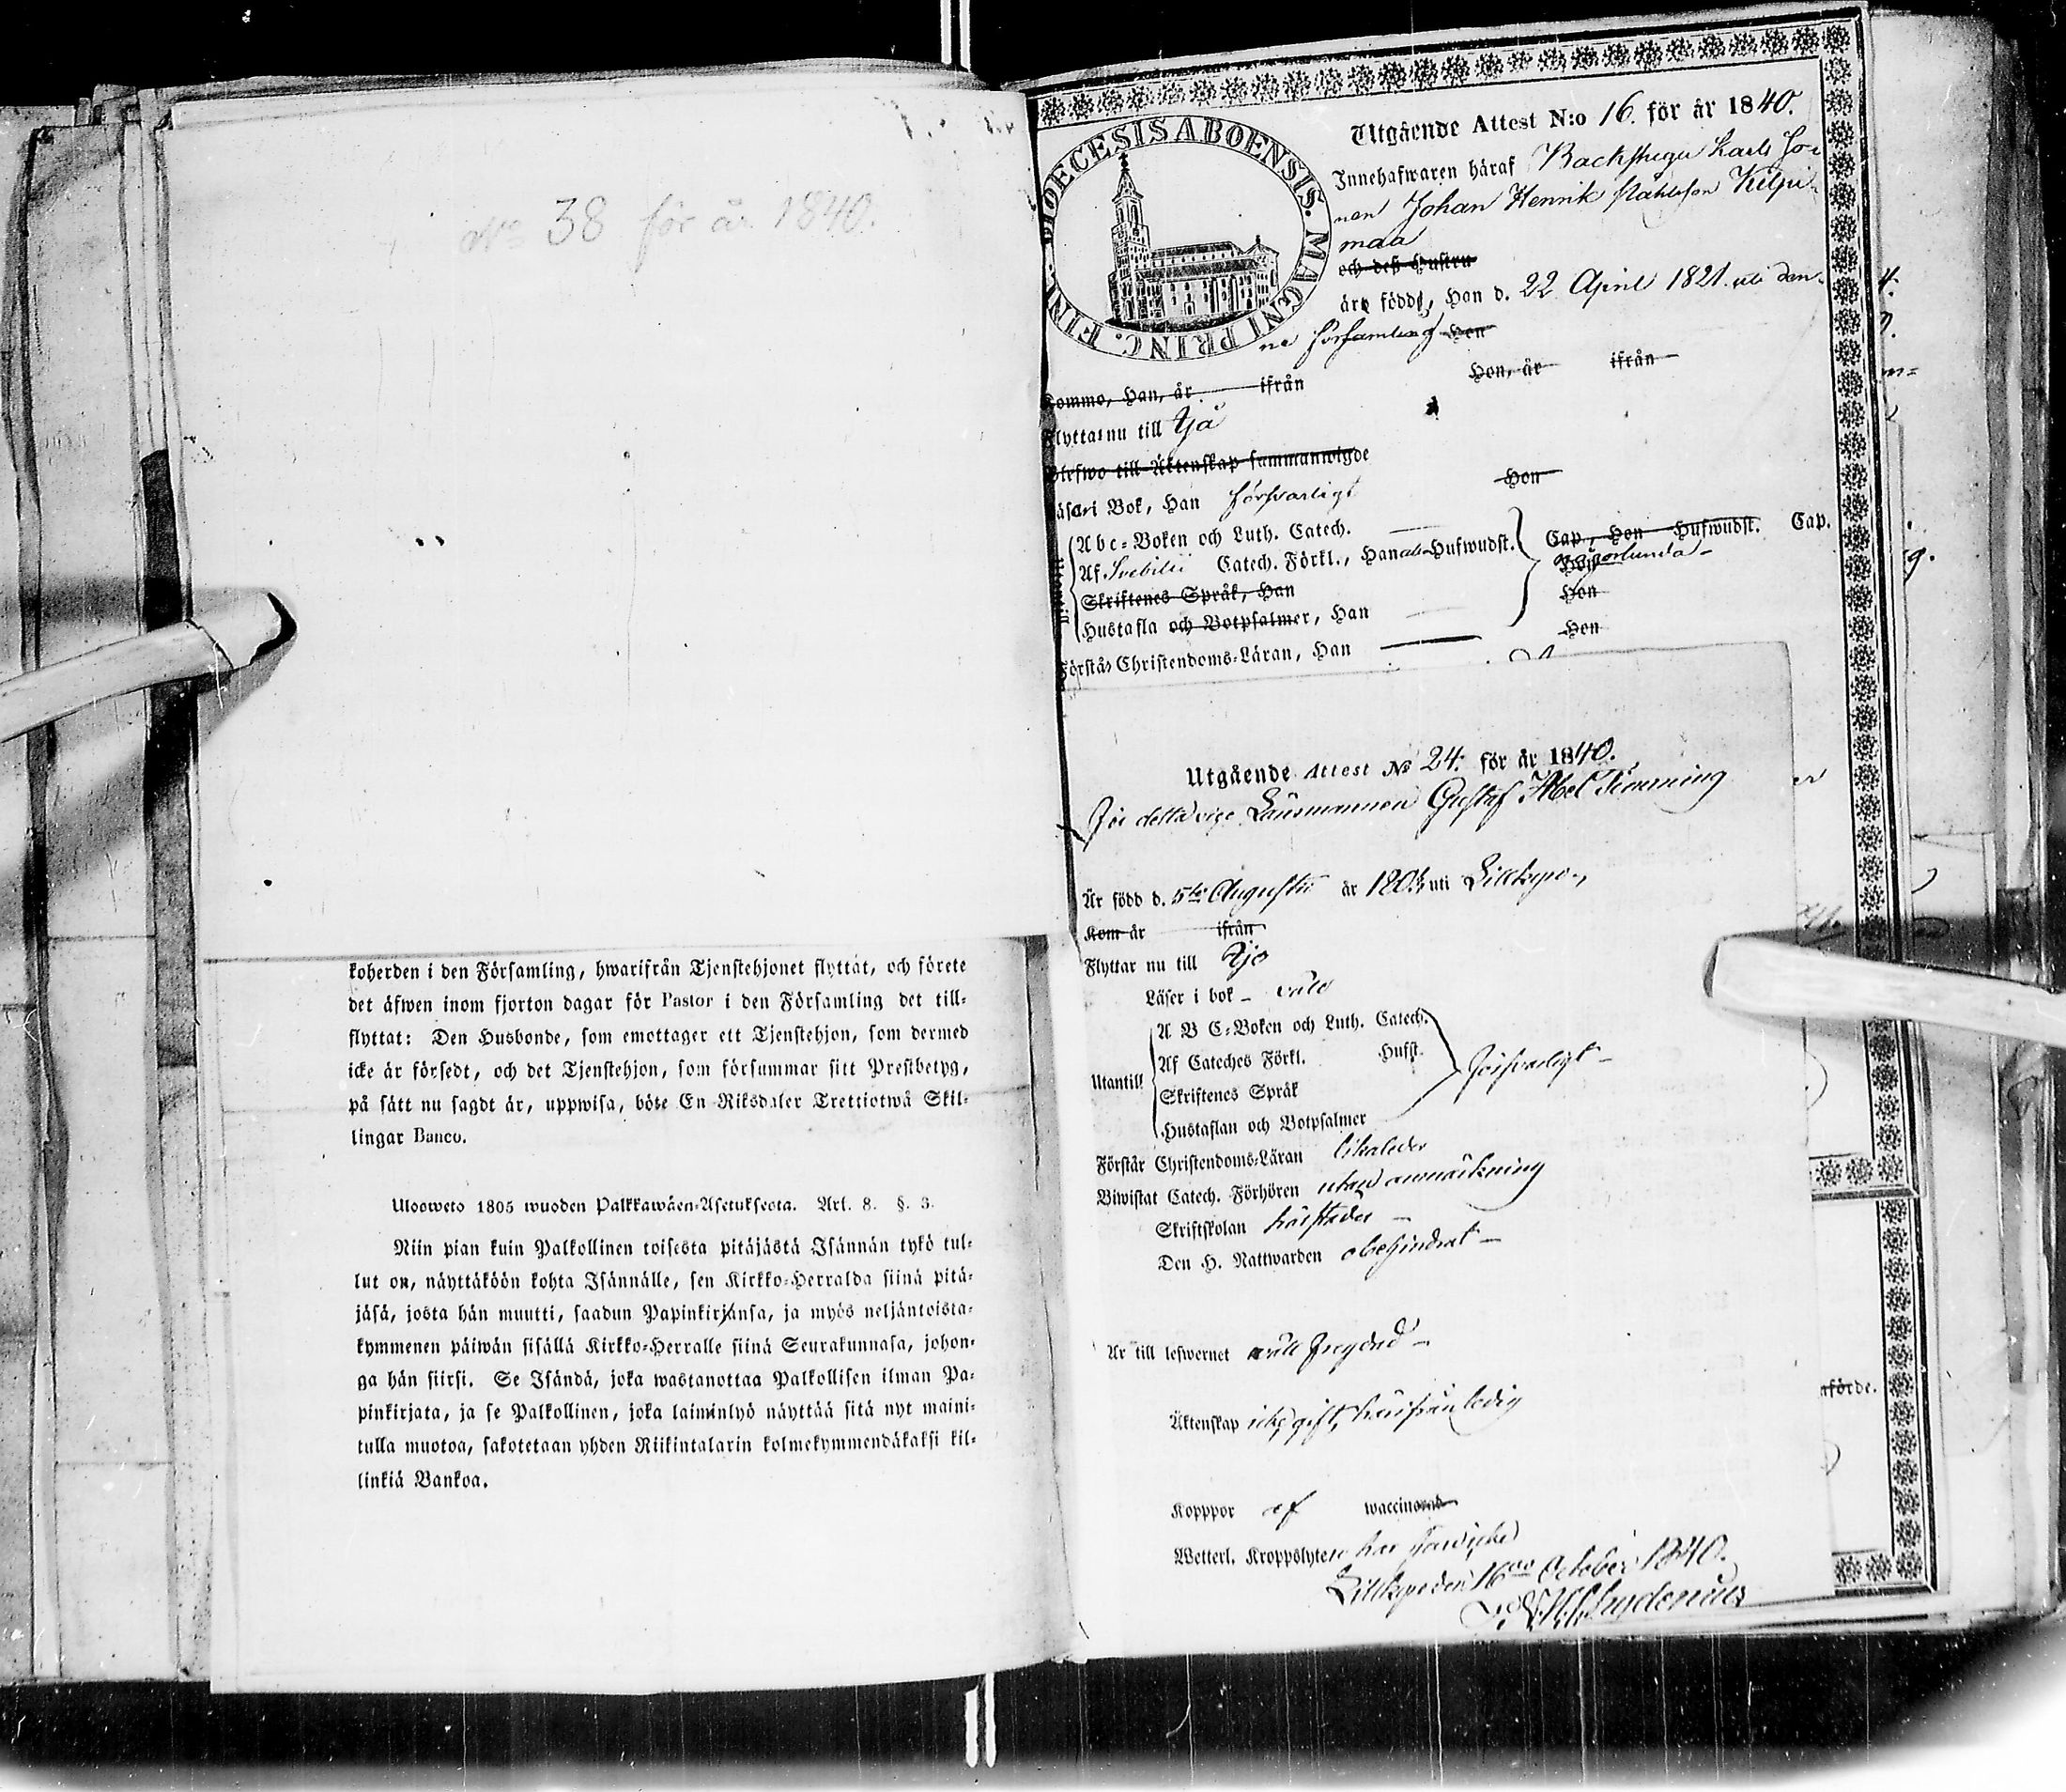 No 38 för år 1840.
koherden i den Församling, hwarifrån Tjenstehjonet flyttat, och förete
det äfwen inom fjorton dagar för Pastor i den Församling det till-
flyttat: Den Husbonde, som emottager ett Tjenstehjon, som dermed
icke är försedt, och det Tjenstehjon, som försummar sitt Prestbetyg,
på sätt nu sagdt är, uppwisa, böte En Riksdaler Trettiotwå Skil-
lingar Banco.
Ulosweto 1805 wuoden Palkkawäen-Asetuksesta. Art. 8. §. 3.
Niin pian kuin Palkollinen toisesta pitäjästä Isännän tykö tul-
lut on, näyttäköön kohta Isännälle, sen Kirkko-Herralda siinä pitä-
jäsä, josta hän muutti, saadun Papinkirjansa, ja myös neljäntoista-
kymmenen päiwän sisällä Kirkko-Herralle siinä Seurakunnasa, johon-
ga hän siirsi. Se Isändä, joka wastanottaa Palkollisen ilman Pa-
pinkirjata, ja se Palkollinen, joka laiminlyö näyttää sitä nyt maini-
tulla muotoa, sakotetaan yhden Riikintalarin kolmekymmendäkaksi kil-
linkiä Bankoa.
DIOECESIS ABOENSIS. MAGNI PRINC. FINL.
Utgående Attest N:o 16. för år 1840.
Innehafwaren häraf Karls
nen Johan Henrik
maa
och deß Hustru
äro födde, Han d. 22 April 1821. uti den-
na församling Hon
Kommo, Han, år ifrån Hon, år ifrån
Flytta nu till
Blefwo till Äktenskap sammanwigde
Läsa i Bok, Han försvarligt Hon
Abc-Boken och Luth. Catech.
Af Svebilii Catech. Förkl., Han Hufwudst. Cap., Hon Hufwudst. Cap.
någorlunda
Hon
Skriftenes Språk, Han Hon
Hustafla och Botpsalmer, Han Hon
Förstå Christendoms-Läran, Han
Utgående Attest No 24. för år 1840.
Länsmannen Gustaf Abel
Är född d. 5te Augusti år uti
Kom år ifrån
Flyttar nu till
Läser i bok - wäl
Utantill
A B C-Boken och Luth. Catech.
Af Cateches Förkl. Hufst.
försvarligt -
Skriftenes Språk
Hustaflan och Botpsalmer
Förstår Christendoms-Läran likaledes
Biwistat Catech. Förhören utan anmärkning
Skriftskolan
Den H. Nattwarden obehindrat -
Är till lefwernet wäl frejdad -
Äktenskap icke gift, härifrån ledig
Kopppor af waccinerad
Wetterl. Kroppslyten har
den 16de October 1840.
införde.